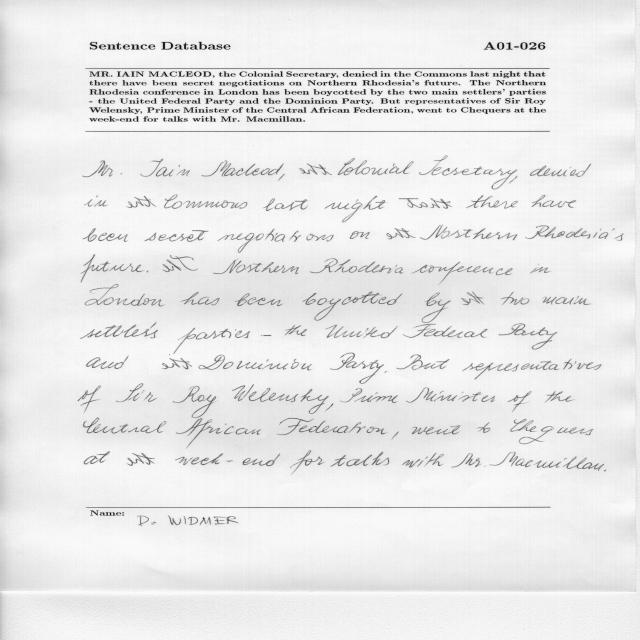 Sentence Database A01-026
MR. IAIN MACLEOD, the Colonial Secretary, denied in the Commons last night that
there have been secret negotiations on Northern Rhodesia's future. The Northern
Rhodesia conference in London has been boycotted by the two main settlers' parties
- the United Federal Party and the Dominion Party. But representatives of Sir Roy
Welensky, Prime Minister of the Central African Federation, went to Chequers at the
week-end for talks with Mr. Macmillan.
Mr. Iain Macleod, the Colonial Secretary, denied
in the Commons last night that there have
been secret negotiations on the Northern Rhodesia's
future. The Northern Rhodesia conference in
London has been boycotted by the two main
settlers parties - the United Federal Party
and the Dominion Party. But representatives
of Sir Roy Welensky, Prime Minister of the
Central African Federation, went to Chequers
at the week-end for talks with Mr. Macmillan.
Name: D. WIDMER